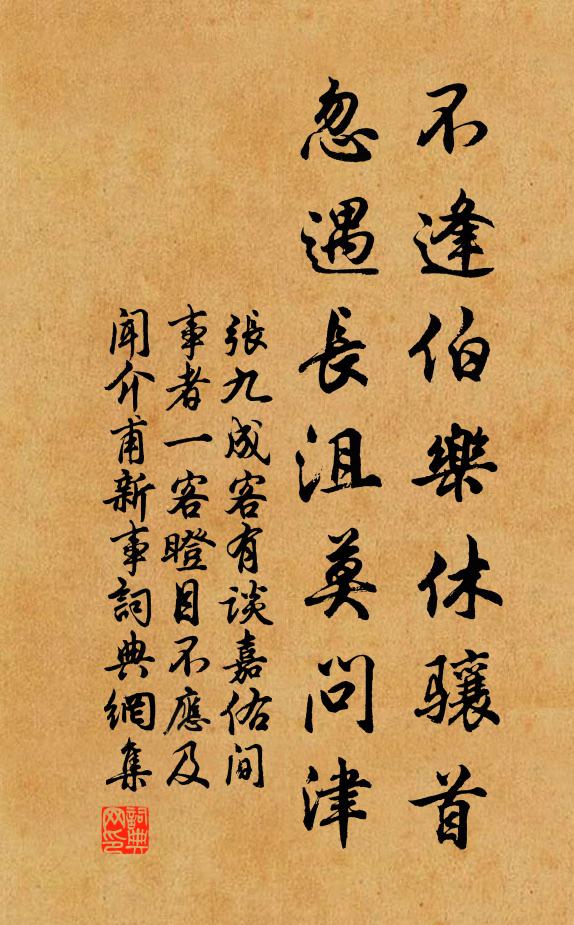 不逢伯樂休驤首
忽遇長沮莫問津
張九成客有談嘉佑間
事者一客瞪目不應及
聞介甫新事詞典網集
詞典
网印